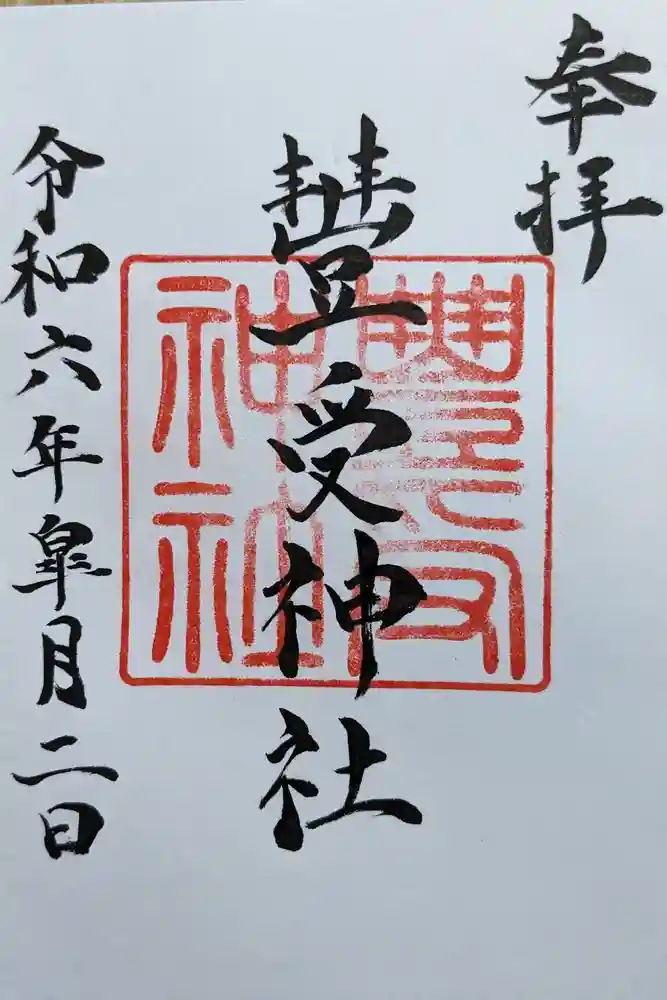 奉拝
豐受神社
豐受
神社
令和六年皐月二日